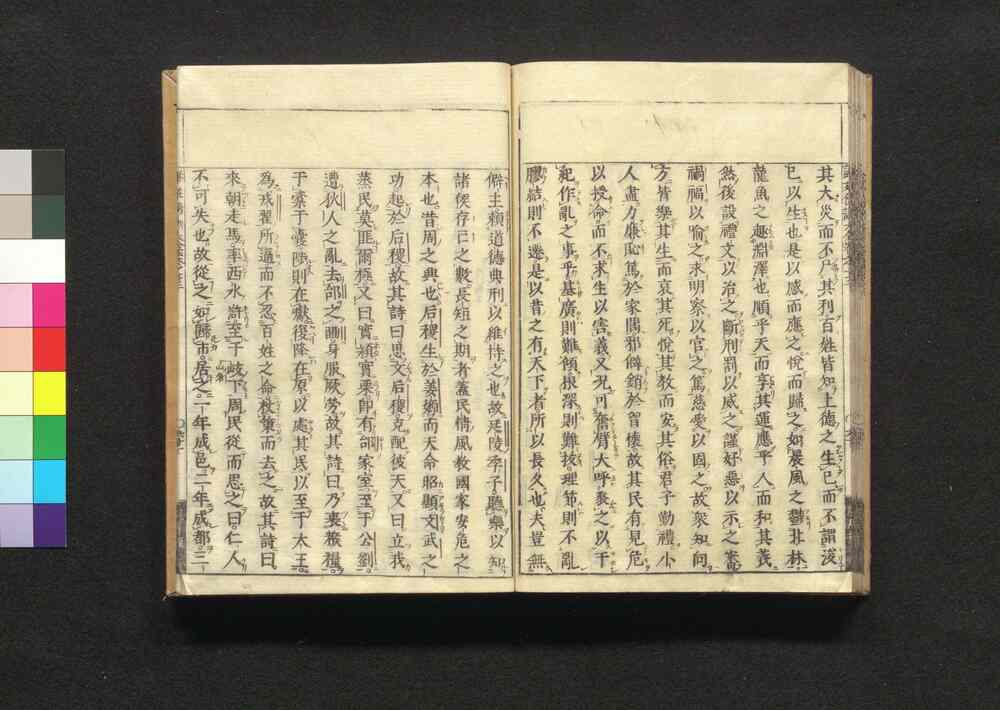 其大災而不尸其利百姓皆知上德之生已而不謂浚
已以生也是以感而應之悅而歸之如晨風之鬱北林
龍魚之趣淵澤也順乎天而享其運應乎人而和其義
然後設禮文以治之斷刑罰以威之謹好惡以示之審
禍福以喩之求明察以官之篤慈愛以固之故衆知向
方皆樂其生而哀其死悅其敎而安其俗君子勤禮小
人盡力廉恥篤於家閭邪僻銷於胷懷故其民有見危
以授命而不求生以害義又況可奮臂大呼聚之以干
紀作亂之事乎基廣則難傾根深則難拔理節則不亂
膠結則不遷是以昔之有天下者所以長久也夫豈無
僻主賴道德典刑以維持之也故延陵季子聽樂以知
諸侯存亡之數長短之期者蓋民情風敎國家安危之
本也昔周之興也后稷生於姜嫄而天命昭顯文武之
功起於后稷故其詩曰思文后稷克配彼天又曰立我
蒸民莫匪爾極又曰實穎實栗卽有邰家室至于公劉
遭狄人之亂去邰之豳身服厥勞故其詩曰乃裹餱糧
于橐于囊陟則在巘復降在原以處其民以至于太王
爲戎翟所逼而不忍百姓之命杖策而去之故其詩曰
來朝走馬率西水滸至于岐下周民從而思之曰仁人
不可失也故從之如歸市居之一年成邑二年成都三